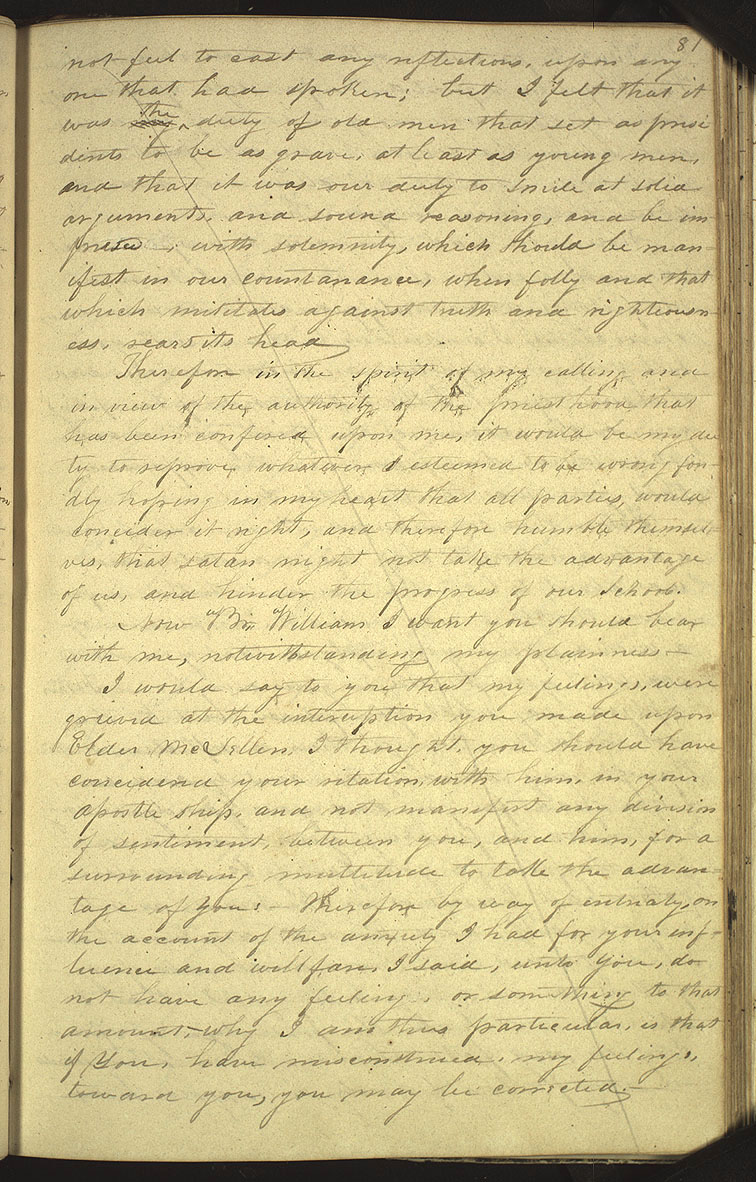 81
not feel to cast any reflections, upon any
one that had spoken; but I felt that it
was my the duty of old men that set as presi
dents to be as grave, at least as young men,
and that it was our duty to smile at solid
arguments, and sound reasoning, and be im
presed, with solemnity, which should be man
ifest in our countanance, when folly and that
which militates against truth and righteousn
ess, rears its head
Therefore in the spirit of my calling and
in view of the authority of the priesthood that
has been confered upon me, it would be my du
ty to reprove whatever I esteemed to be wrong fon
dly hoping in my heart that all parties, would
concider it right, and therefore humble themsel
ves, that satan might not take the advantage
of us, and hinder the progress of our School.
Now Br. William I want you should bear
with me, notwithstanding my plainness—
I would say to you that my feelings, were
grieved at the interuption you made upon
Elder McLellen, I thought, you should have
concidered your relation, with him, in your
apostle ship, and not manifest any division
of sentiment, between you, and him, for a
surrounding multitude to take the advan
tage of you:— Therefore by way of entreaty, on
the account of the anxiety I had for your inf-
luence and wellfare, I said, unto you, do
not have any feeling, or something to that
amount, why I am thus particular, is that
if You, have misconstrued, my feelings,
toward you, you may be corrected.—